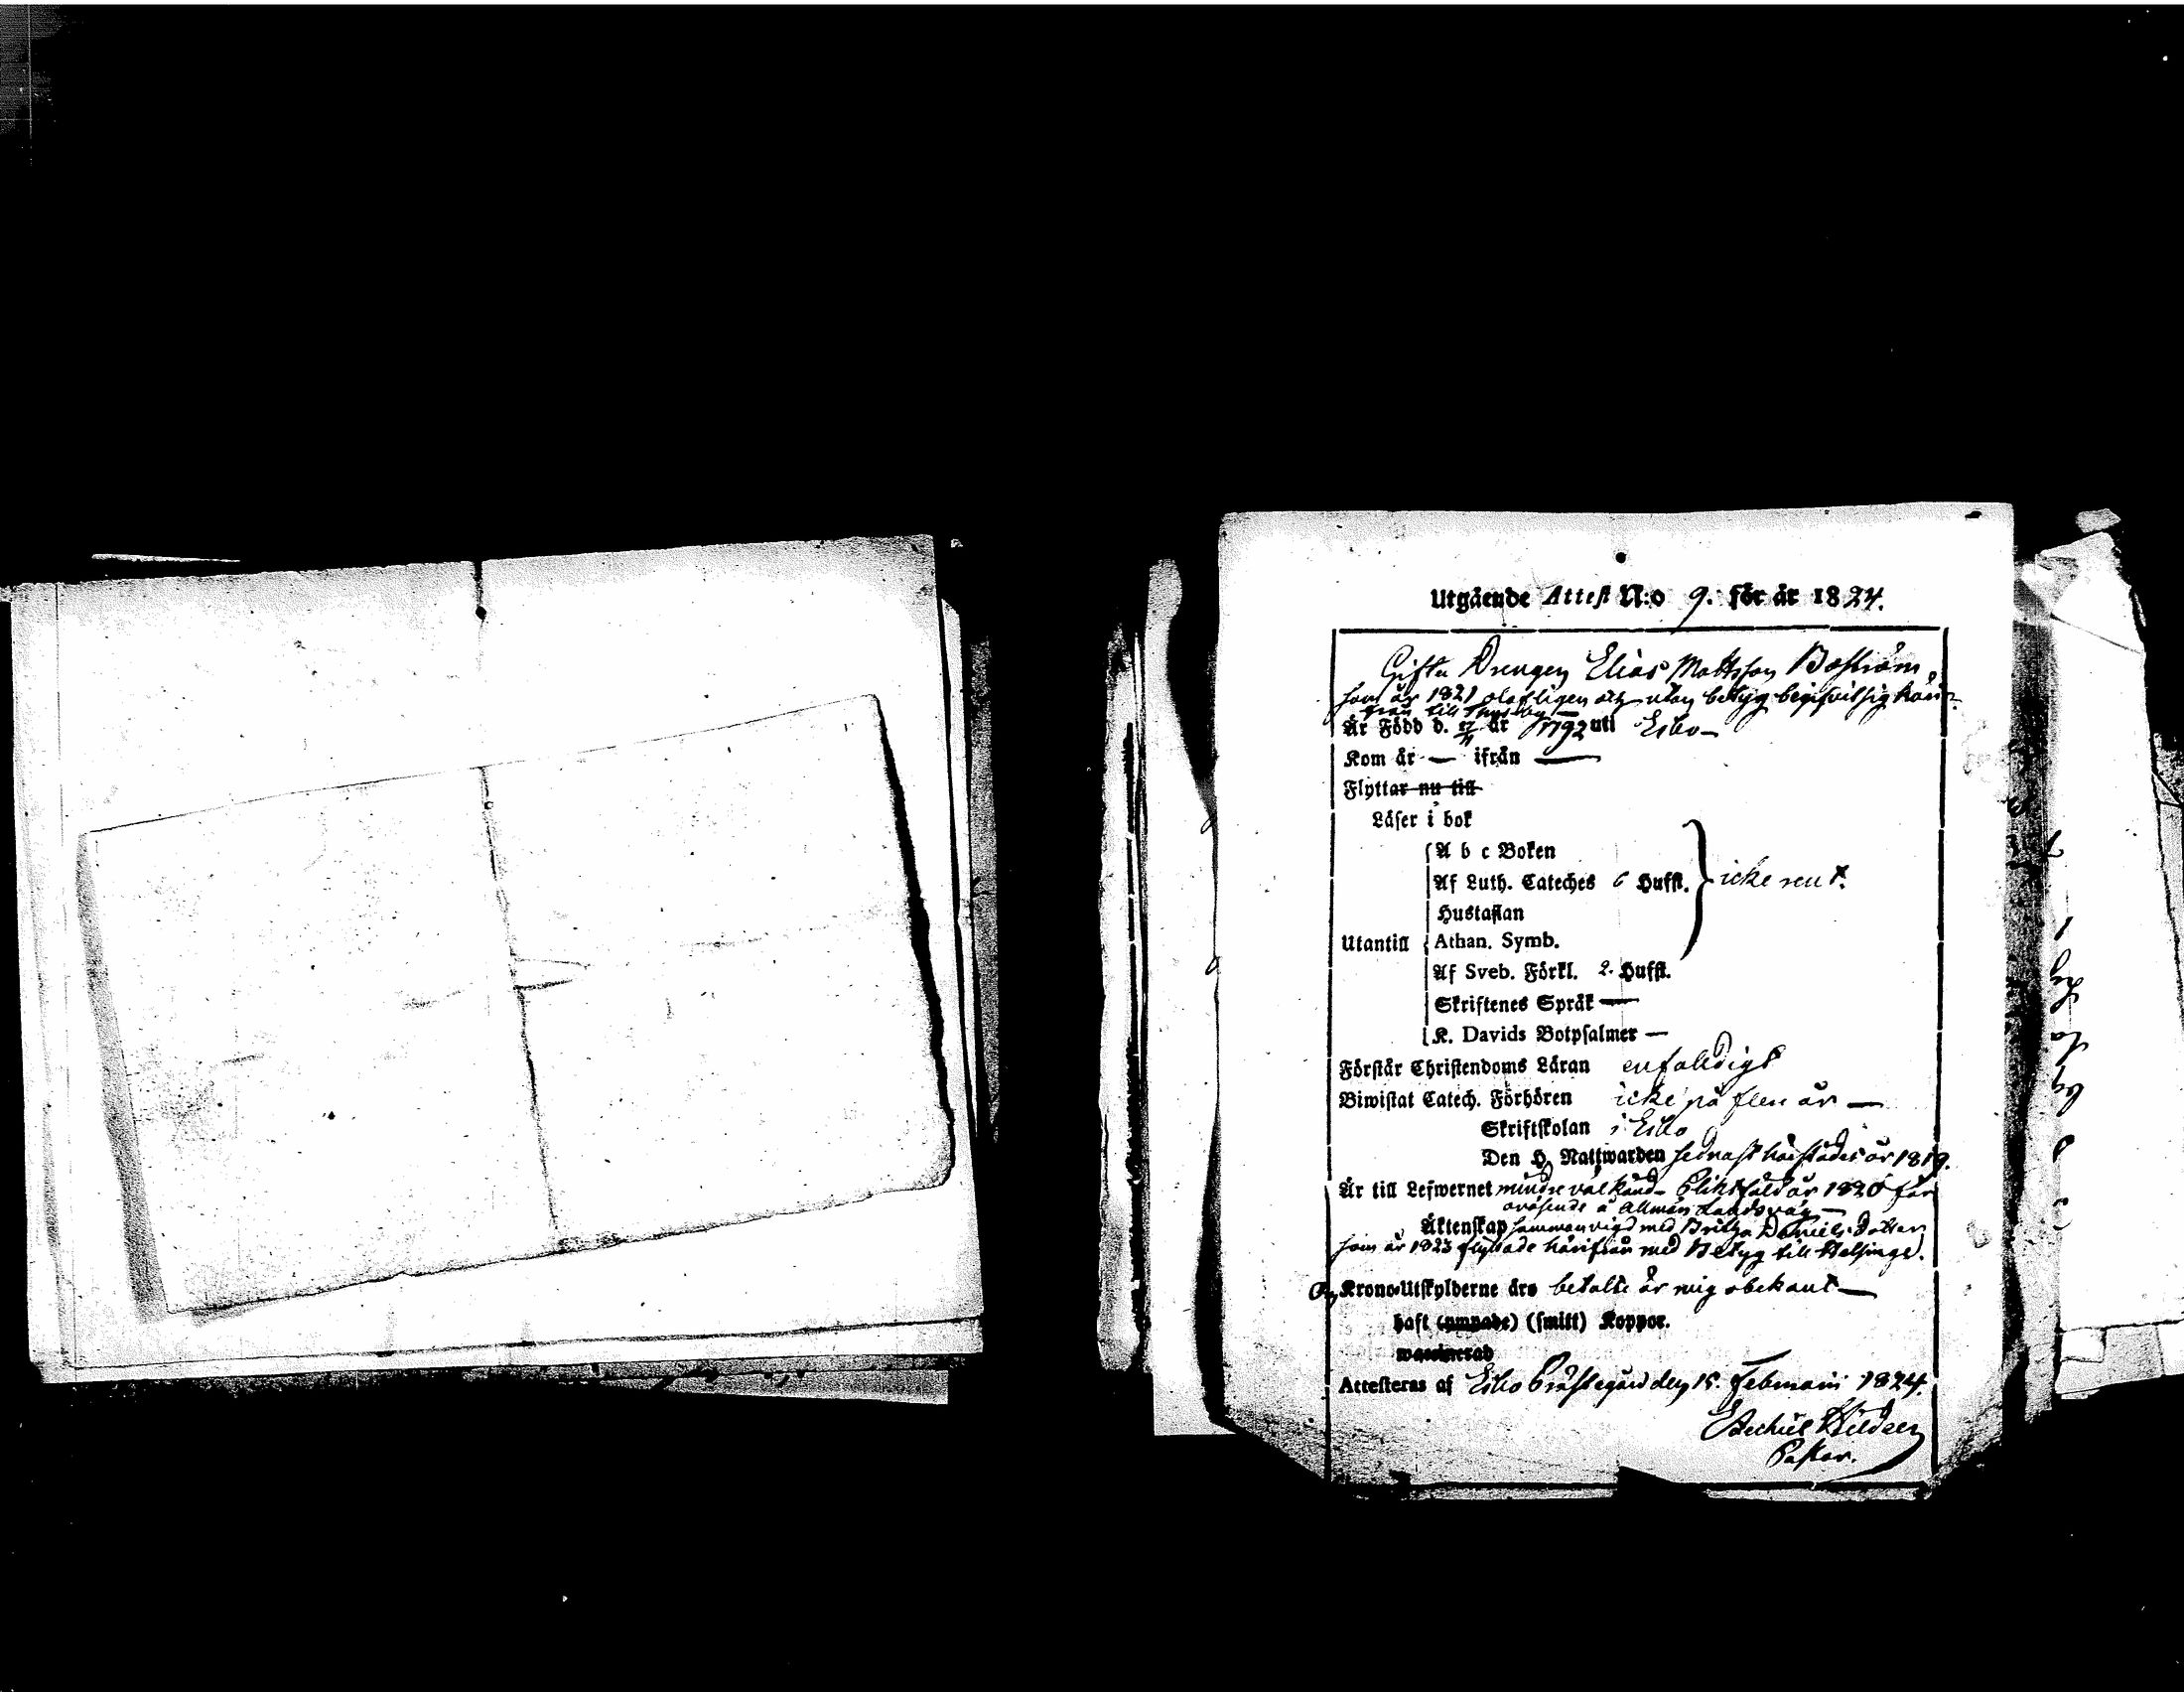 Utgående Attest N:o 9. för år 1824.
Gifta Drengen Elias Mattsson Boström
som år 1821 olofligen och utan betyg begifvit sig häri-
från till
Är Född d. 17/11 år 1792 uti Esbo —
Kom år — ifrån —
Flyttar nu till
Läser i bok
A b c Boken
Af Luth. Cateches 6 Hufst. icke rent.
Hustaflan
Utantill Athan. Symb.
Af Sveb. Förkl. 2. Hufst.
Skriftenes Språk —
K. Davids Botpsalmer —
Förstår Christendoms Läran enfaldigt
Biwistat Catech. Förhören icke på flere år —
Skriftskolan i Esbo
Den H. Nattwarden sednast härstädes år 1819.
Är till Lefwernet mindre väl känd — Pliktfäld år 1820 för
oväsende å Allmän Landsväg —
Äktenskap sammanvigd med Britha Daniels Dotter
som år 1823 flyttade härifrån med Betyg till Helsinge.
Om Krono-Utskylderne äro betalte är mig obekant —
haft (ympade) (smitt) Koppor.
waccinerad
Attesteras af Esbo Prästegård den 15. Februarii 1824.
Hildeen
Pastor.